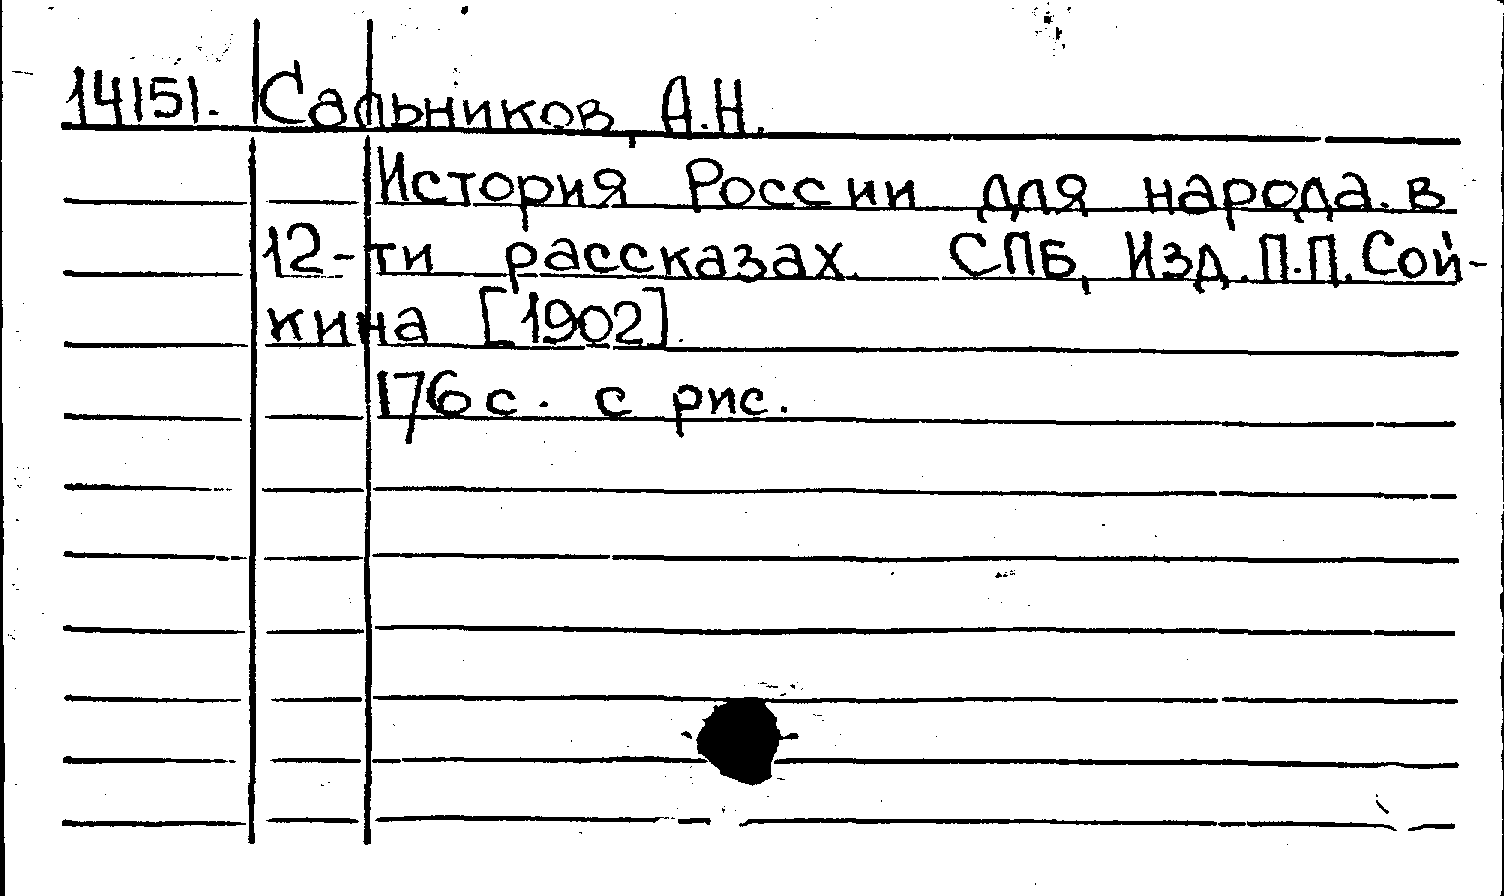 14151. Сальников, А.Н.
История России для народа. в
12-ти рассказах. СПБ, Изд. П.П. Сой-
кина [1902].
176 с. с рис.